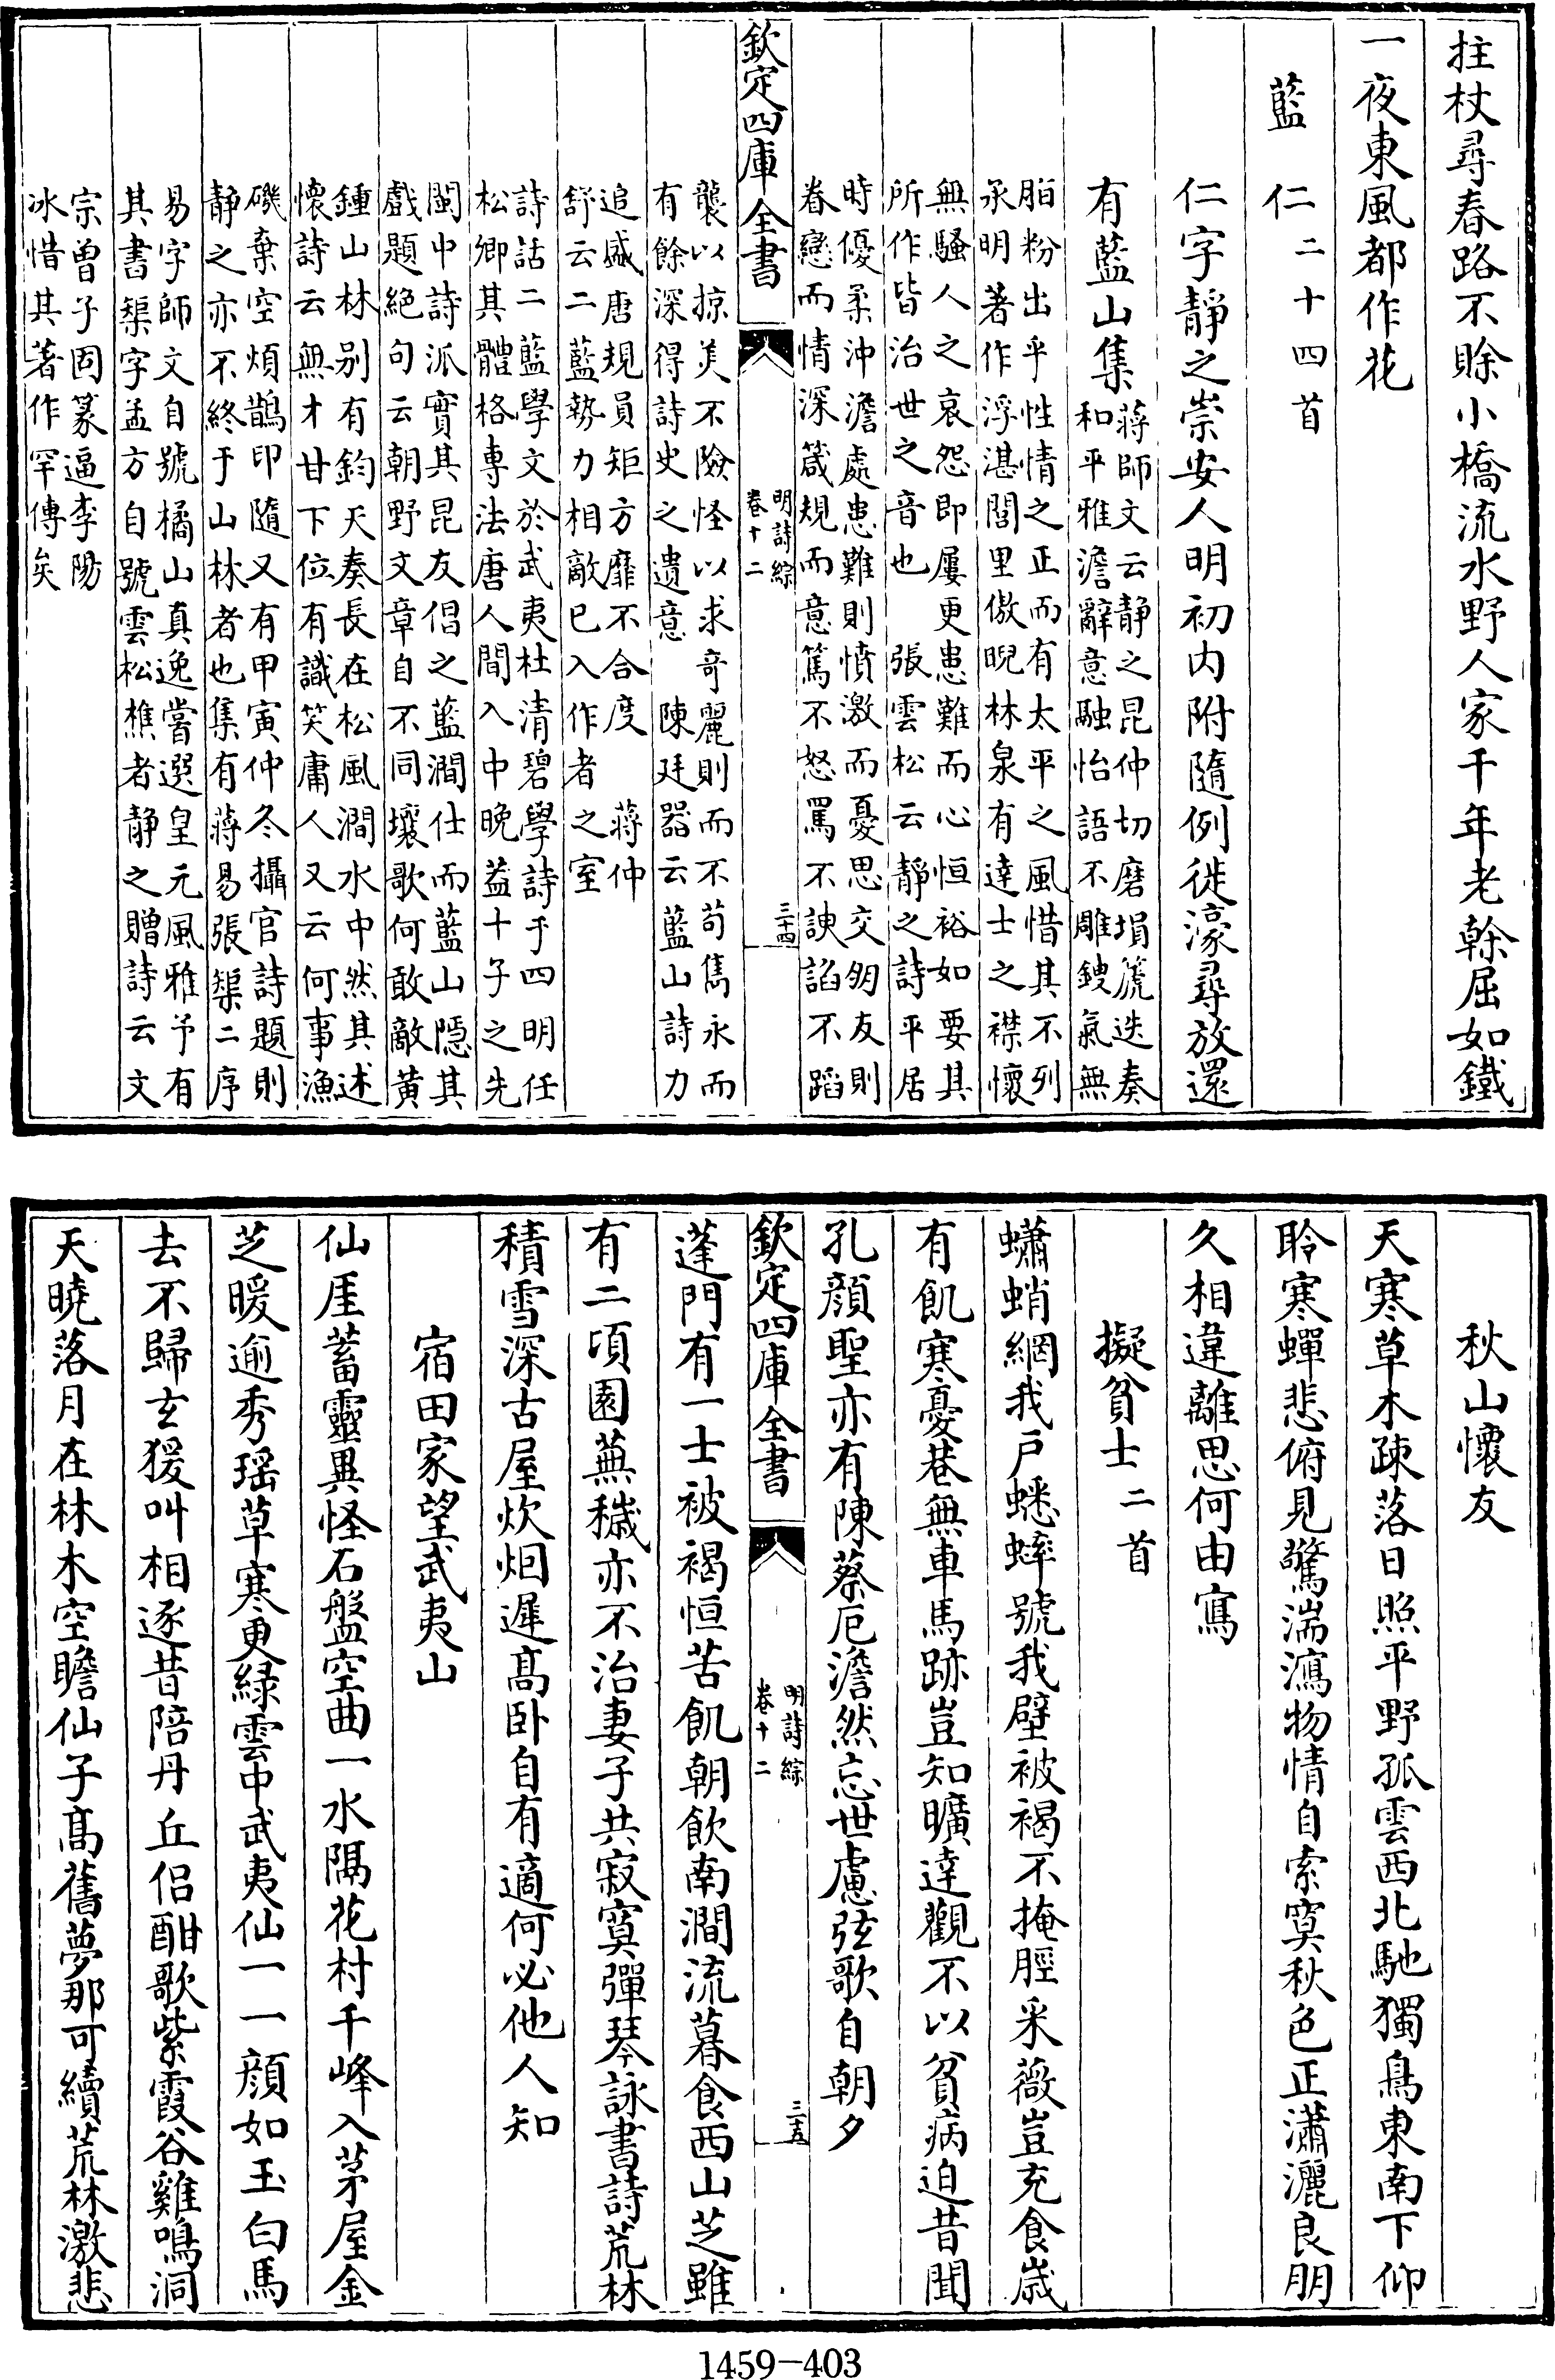 拄杖尋春路不賒小橋流水野人家千年老榦屈如鐵
一夜東風都作花
藍仁二十四首
仁字靜之崇安人明初內附隨例徙濠尋放還
有藍山集
蔣師文云靜之昆仲切磨塤篪迭奏
和平雅澹辭意融怡語不雕鎪氣無
脂粉出乎性情之正而有太平之風惜其不列
承明著作浮湛閭里傲睨林泉有達士之襟懷
無騷人之哀怨即屢更患難而心恒裕如要其
所作皆治世之音也 張雲松云靜之詩平居
時優柔沖澹處患難則憤激而憂思交朋友則
眷戀而情深箴規而意篤不怒罵不諛諂不蹈
欽定四庫全書 明詩綜 卷十二 三十四
襲以掠美不險怪以求奇麗則而不苟雋永而
有餘深得詩史之遺意 陳廷器云藍山詩力
追盛唐規員矩方靡不合度 蔣仲
舒云二藍勢力相敵已入作者之室
詩話二藍學文於武夷杜清碧學詩于四明任
松卿其體格專法唐人間入中晚蓋十子之先
閩中詩派實其昆友倡之藍澗仕而藍山隱其
戲題絕句云朝野文章自不同壤歌何敢敵黃
鍾山林別有鈞天奏長在松風澗水中然其述
懷詩云無才甘下位有識笑庸人又云何事漁
磯棄空煩鵲印隨又有甲寅仲冬攝官詩題則
靜之亦不終于山林者也集有蔣易張榘二序
易字師文自號橘山真逸嘗選皇元風雅予有
其書榘字孟方自號雲松樵者靜之贈詩云文
宗曾子固篆逼李陽
冰惜其著作罕傳矣
秋山懷友
天寒草木疎落日照平野孤雲西北馳獨鳥東南下仰
聆寒蟬悲俯見驚湍瀉物情自索寞秋色正瀟灑良朋
久相違離思何由寫
擬貧士二首
蠨蛸網我戶蟋蟀號我壁被褐不掩脛采薇豈充食歲
有飢寒憂巷無車馬跡豈知曠達觀不以貧病迫昔聞
孔顏聖亦有陳蔡厄澹然忘世慮弦歌自朝夕
欽定四庫全書 明詩綜 卷十二 三十五
蓬門有一士被褐恒苦飢朝飲南澗流暮食西山芝雖
有二頃園蕪穢亦不治妻子共寂寞彈琴詠書詩荒林
積雪深古屋炊烟遲高臥自有適何必他人知
宿田家望武夷山
仙厓蓄靈異怪石盤空曲一水隔花村千峰入茅屋金
芝暖逾秀瑶草寒更緑雲中武夷仙一一顏如玉白馬
去不歸玄猨叫相逐昔陪丹丘侶酣歌紫霞谷雞鳴洞
天曉落月在林木空瞻仙子高舊夢那可續荒林激悲
1459-403